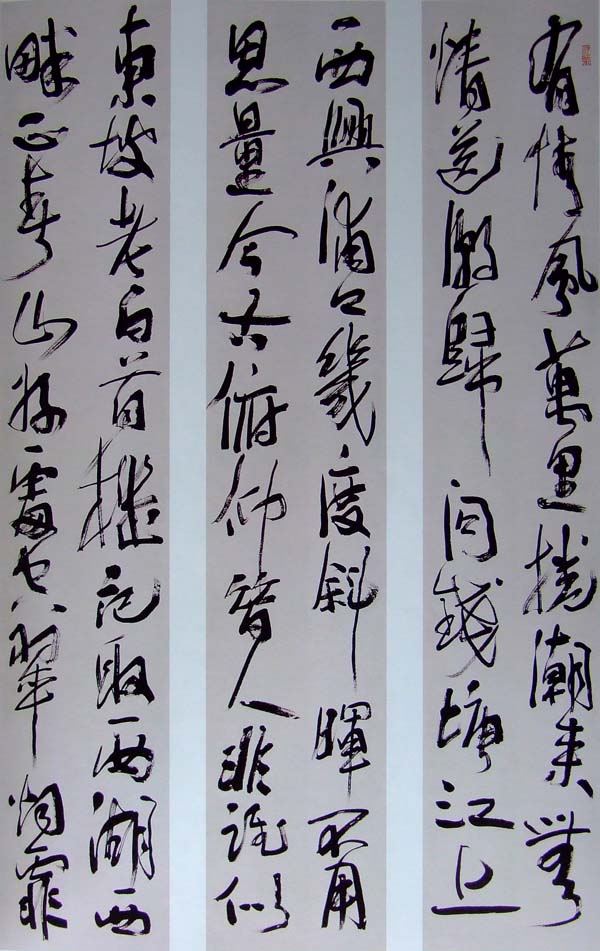 有情風萬里捲潮來無
情送潮歸问錢塘江上
西興浦口幾度斜暉不用
思量今古俯仰昔人非誰似
東坡老白首機記取西湖西
畔正春山好處空翠烟霏